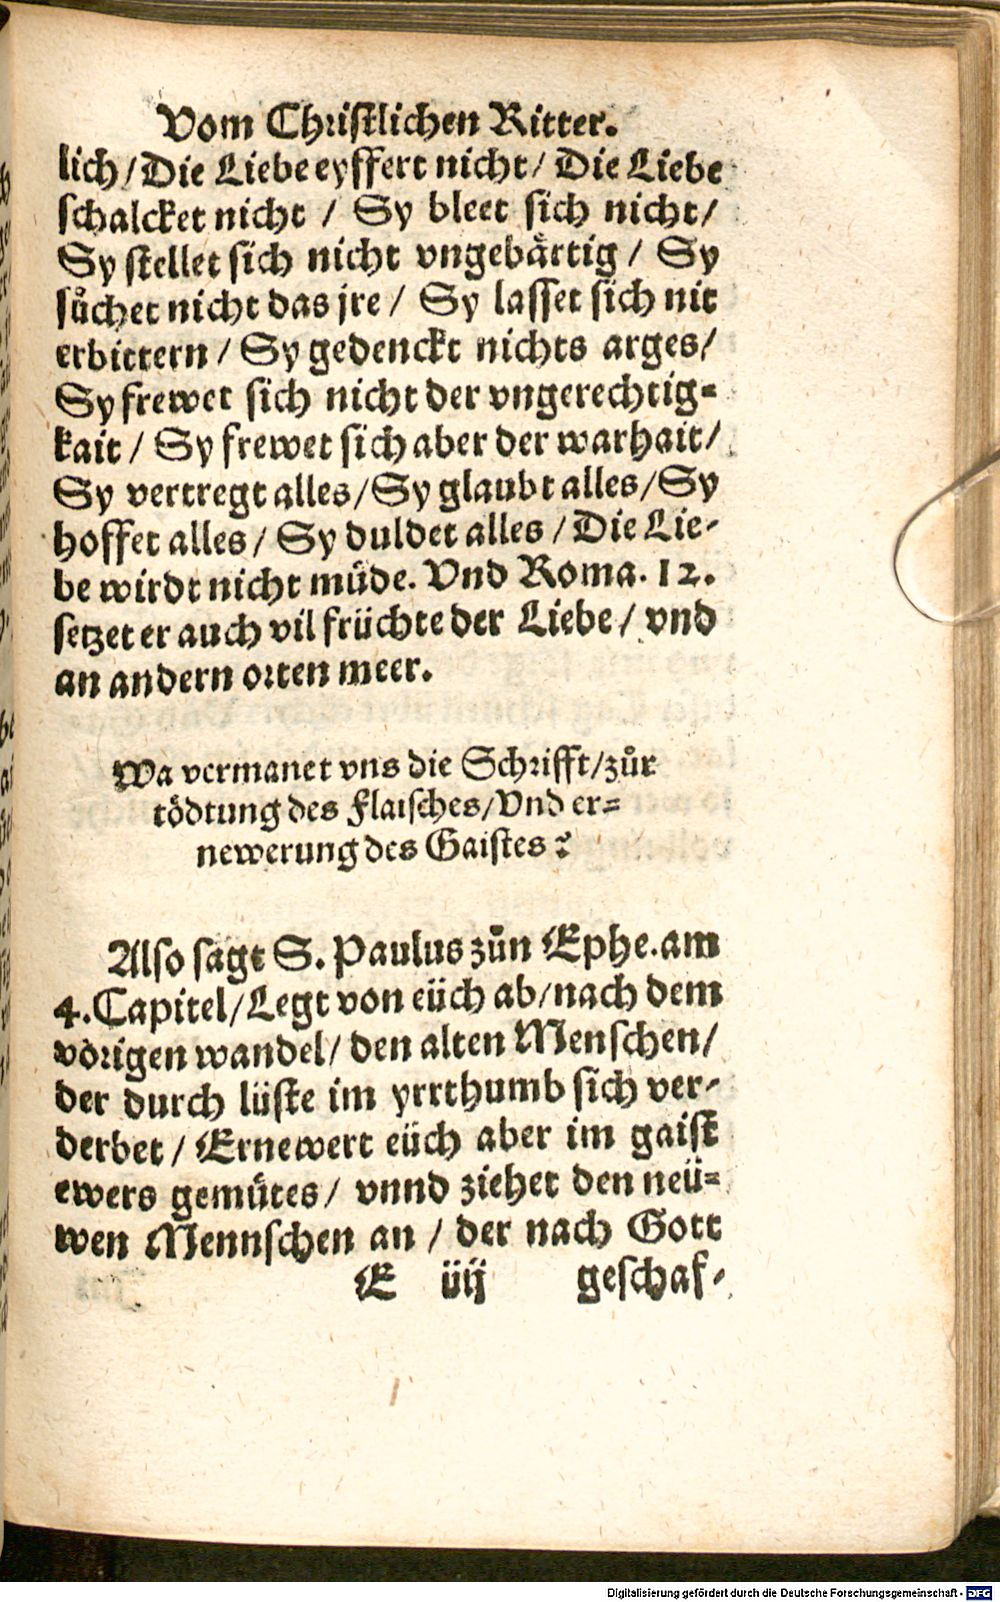 Vom Christlichen Ritter.
lich / Die Liebe eyffert nicht / Die Liebe
schalcket nicht / Sy bleet sich nicht /
Sy stellet sich nicht vngebaͤrtig / Sy
suͦchet nicht das jre / Sy lasset sich nit
erbittern / Sy gedenckt nichts arges /
Sy frewet sich nicht der vngerechtig⸗
kait / Sy frewet sich aber der warhait /
Sy vertregt alles / Sy glaubt alles / Sy
hoffet alles / Sy duldet alles / Die Lie⸗
be wirdt nicht muͤde. Vnd Roma. 12.
setzet er auch vil früchte der Liebe / vnd
an andern orten meer.
Wa vermanet vns die Schrifft / zuͦr
tödtung des Flaisches / Vnd er⸗
newerung des Gaistes?
Also sagt S. Paulus zuͦn Ephe. am
4. Capitel / Legt von eüch ab / nach dem
vorigen wandel / den alten Menschen /
der durch lüste im yrrthumb sich ver⸗
derbet / Ernewert eüch aber im gaist
ewers gemuͤtes / vnnd ziehet den neü⸗
wen Mennschen an / der nach Gott
E iiij geschaf⸗
Digitalisierung gefördert durch die Deutsche Forschungsgemeinschaft - DFG